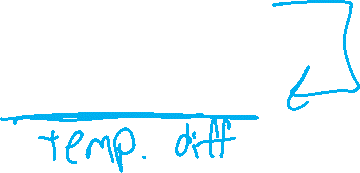 temp. diff